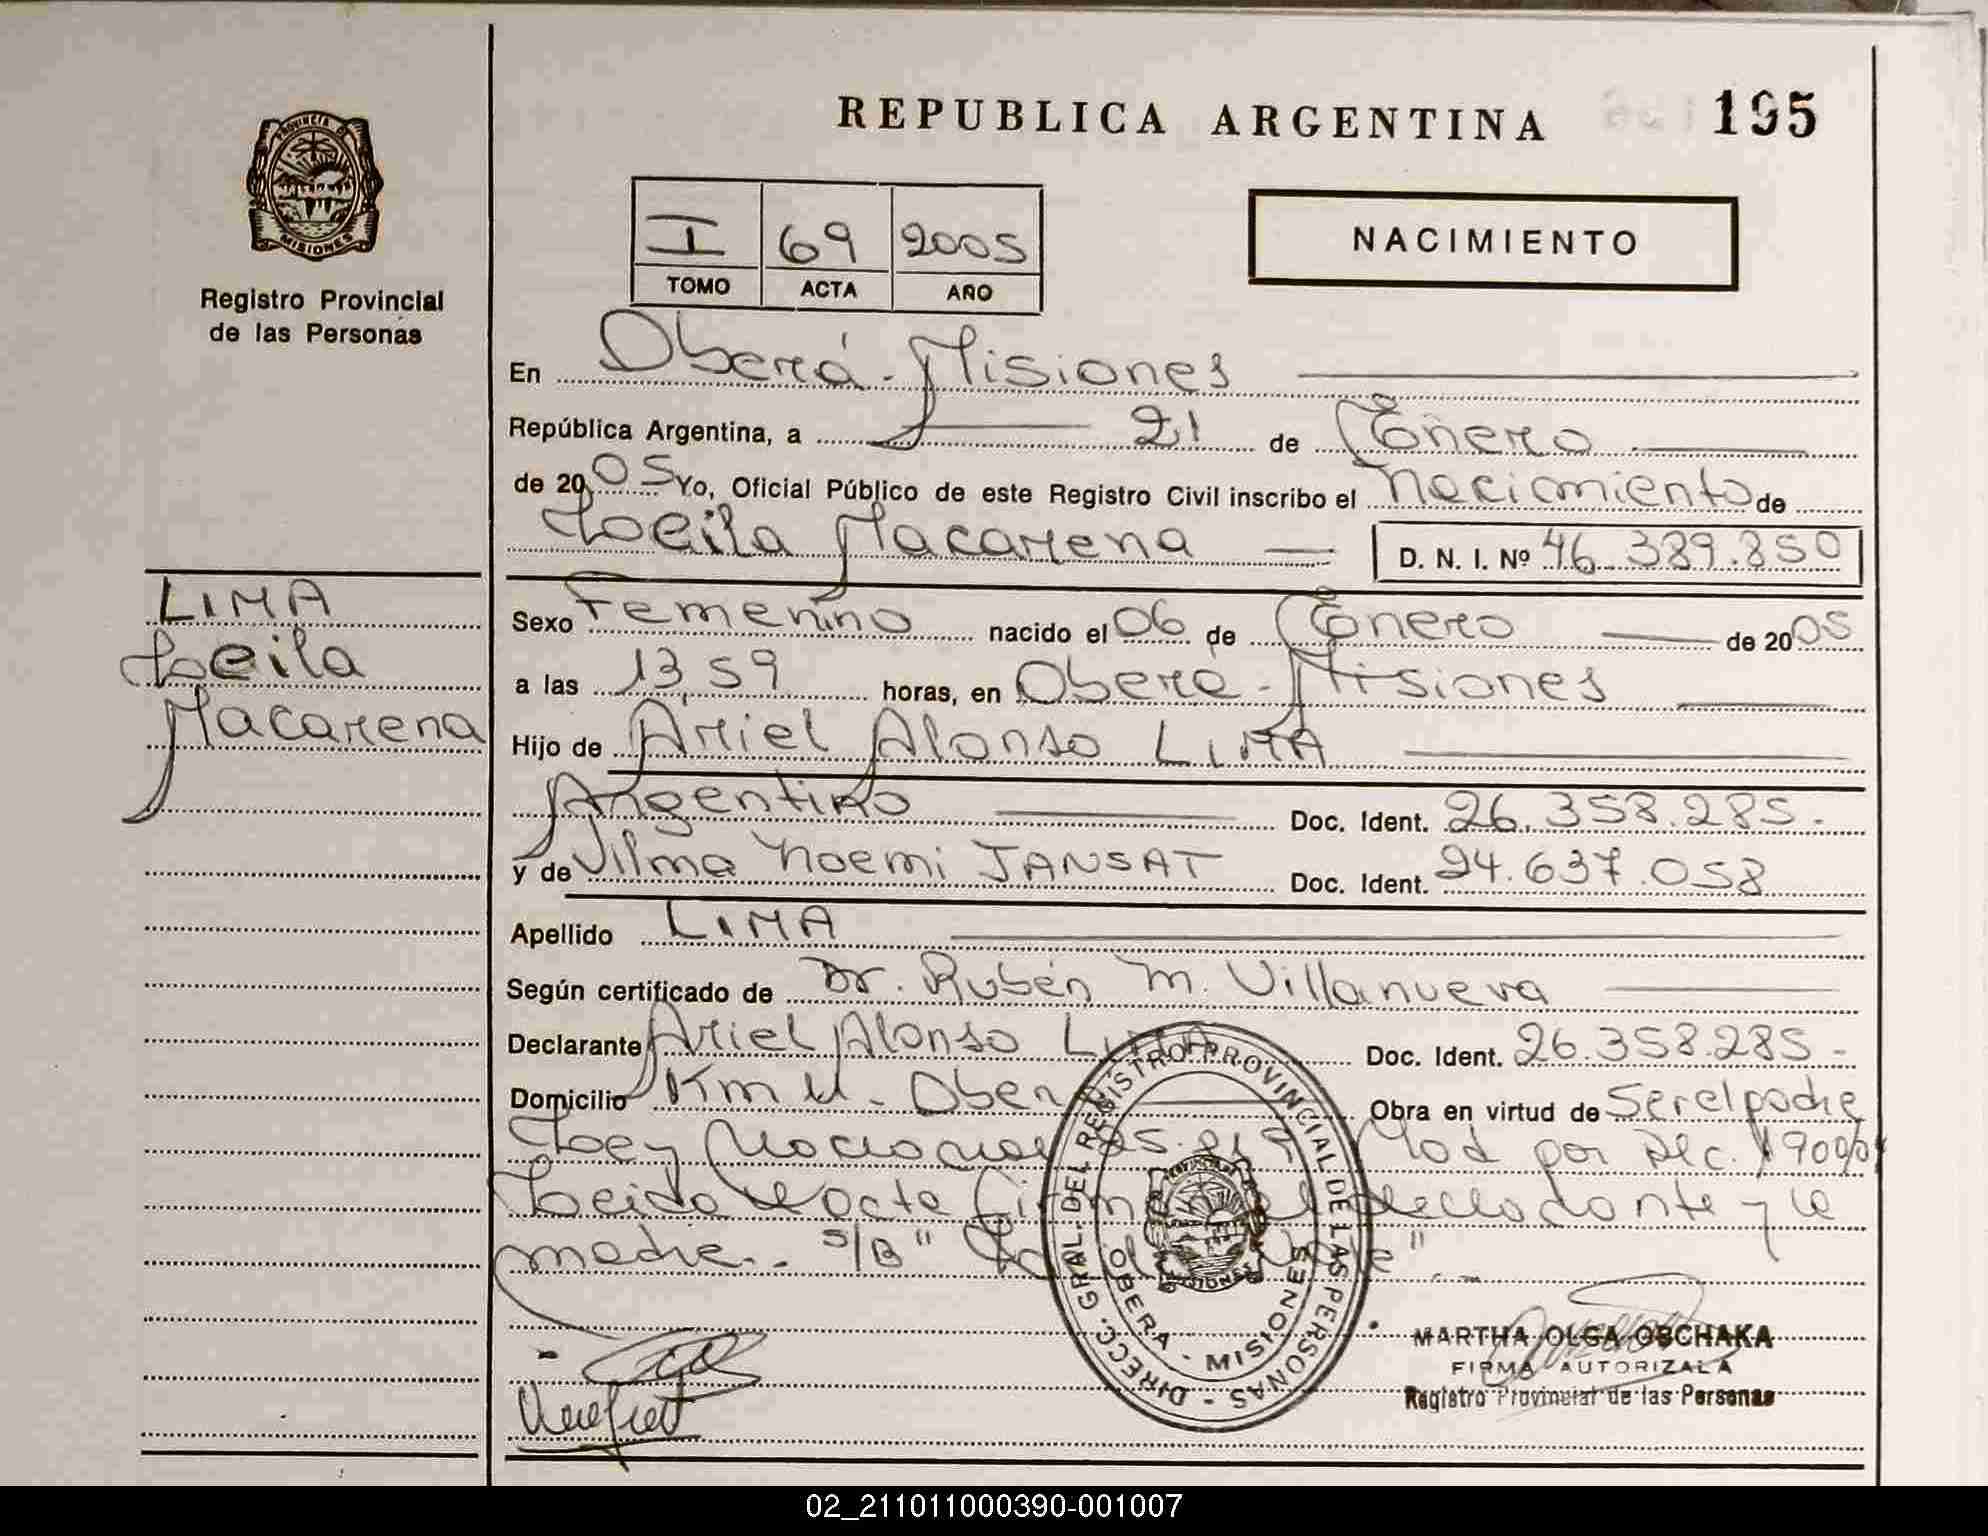 REPUBLICA ARGENTINA
195
PROVINCIA DE
MISIONES
Registro Provincial
de las Personas
I 69 2005
TOMO ACTA AÑO
NACIMIENTO
En Oberá - Misiones
República Argentina, a 21 de Enero
de 2005 Yo, Oficial Público de este Registro Civil inscribo el nacimiento de
Leila Macarena D. N. I. Nº 46.389.850
LIMA
Leila
Macarena
Sexo Femenino nacido el 06 de Enero de 2005
a las 13,59 horas, en Oberá - Misiones
Hijo de Ariel Alonso LIMA
Argentino Doc. Ident. 26.358.285.
y de Vilma Noemi JANSAT Doc. Ident. 24.637.058
Apellido LIMA
Según certificado de Dr. Rubén M. Villanueva
Declarante Ariel Alonso LIMA Doc. Ident. 26.358.285 -
Domicilio Km 11 - Ober Obra en virtud de Ser el padre
Ley Nacional Mod por Dec.
Leida el acta el declarante y la
madre. - S/B "
DIRECC. GRAL. DEL REGISTRO PROVINCIAL DE LAS PERSONAS -
OBERA - MISIONES
MISIONES
MARTHA OLGA OBCHAKA
FIRMA AUTORIZALA
Registro Provincial de las Personas
02_211011000390-001007